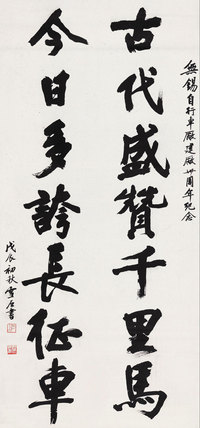 無錫自行車廠建廠卅周年纪念
古代盛贊千里馬
今日多誇長征車
戊辰初秋雪石書